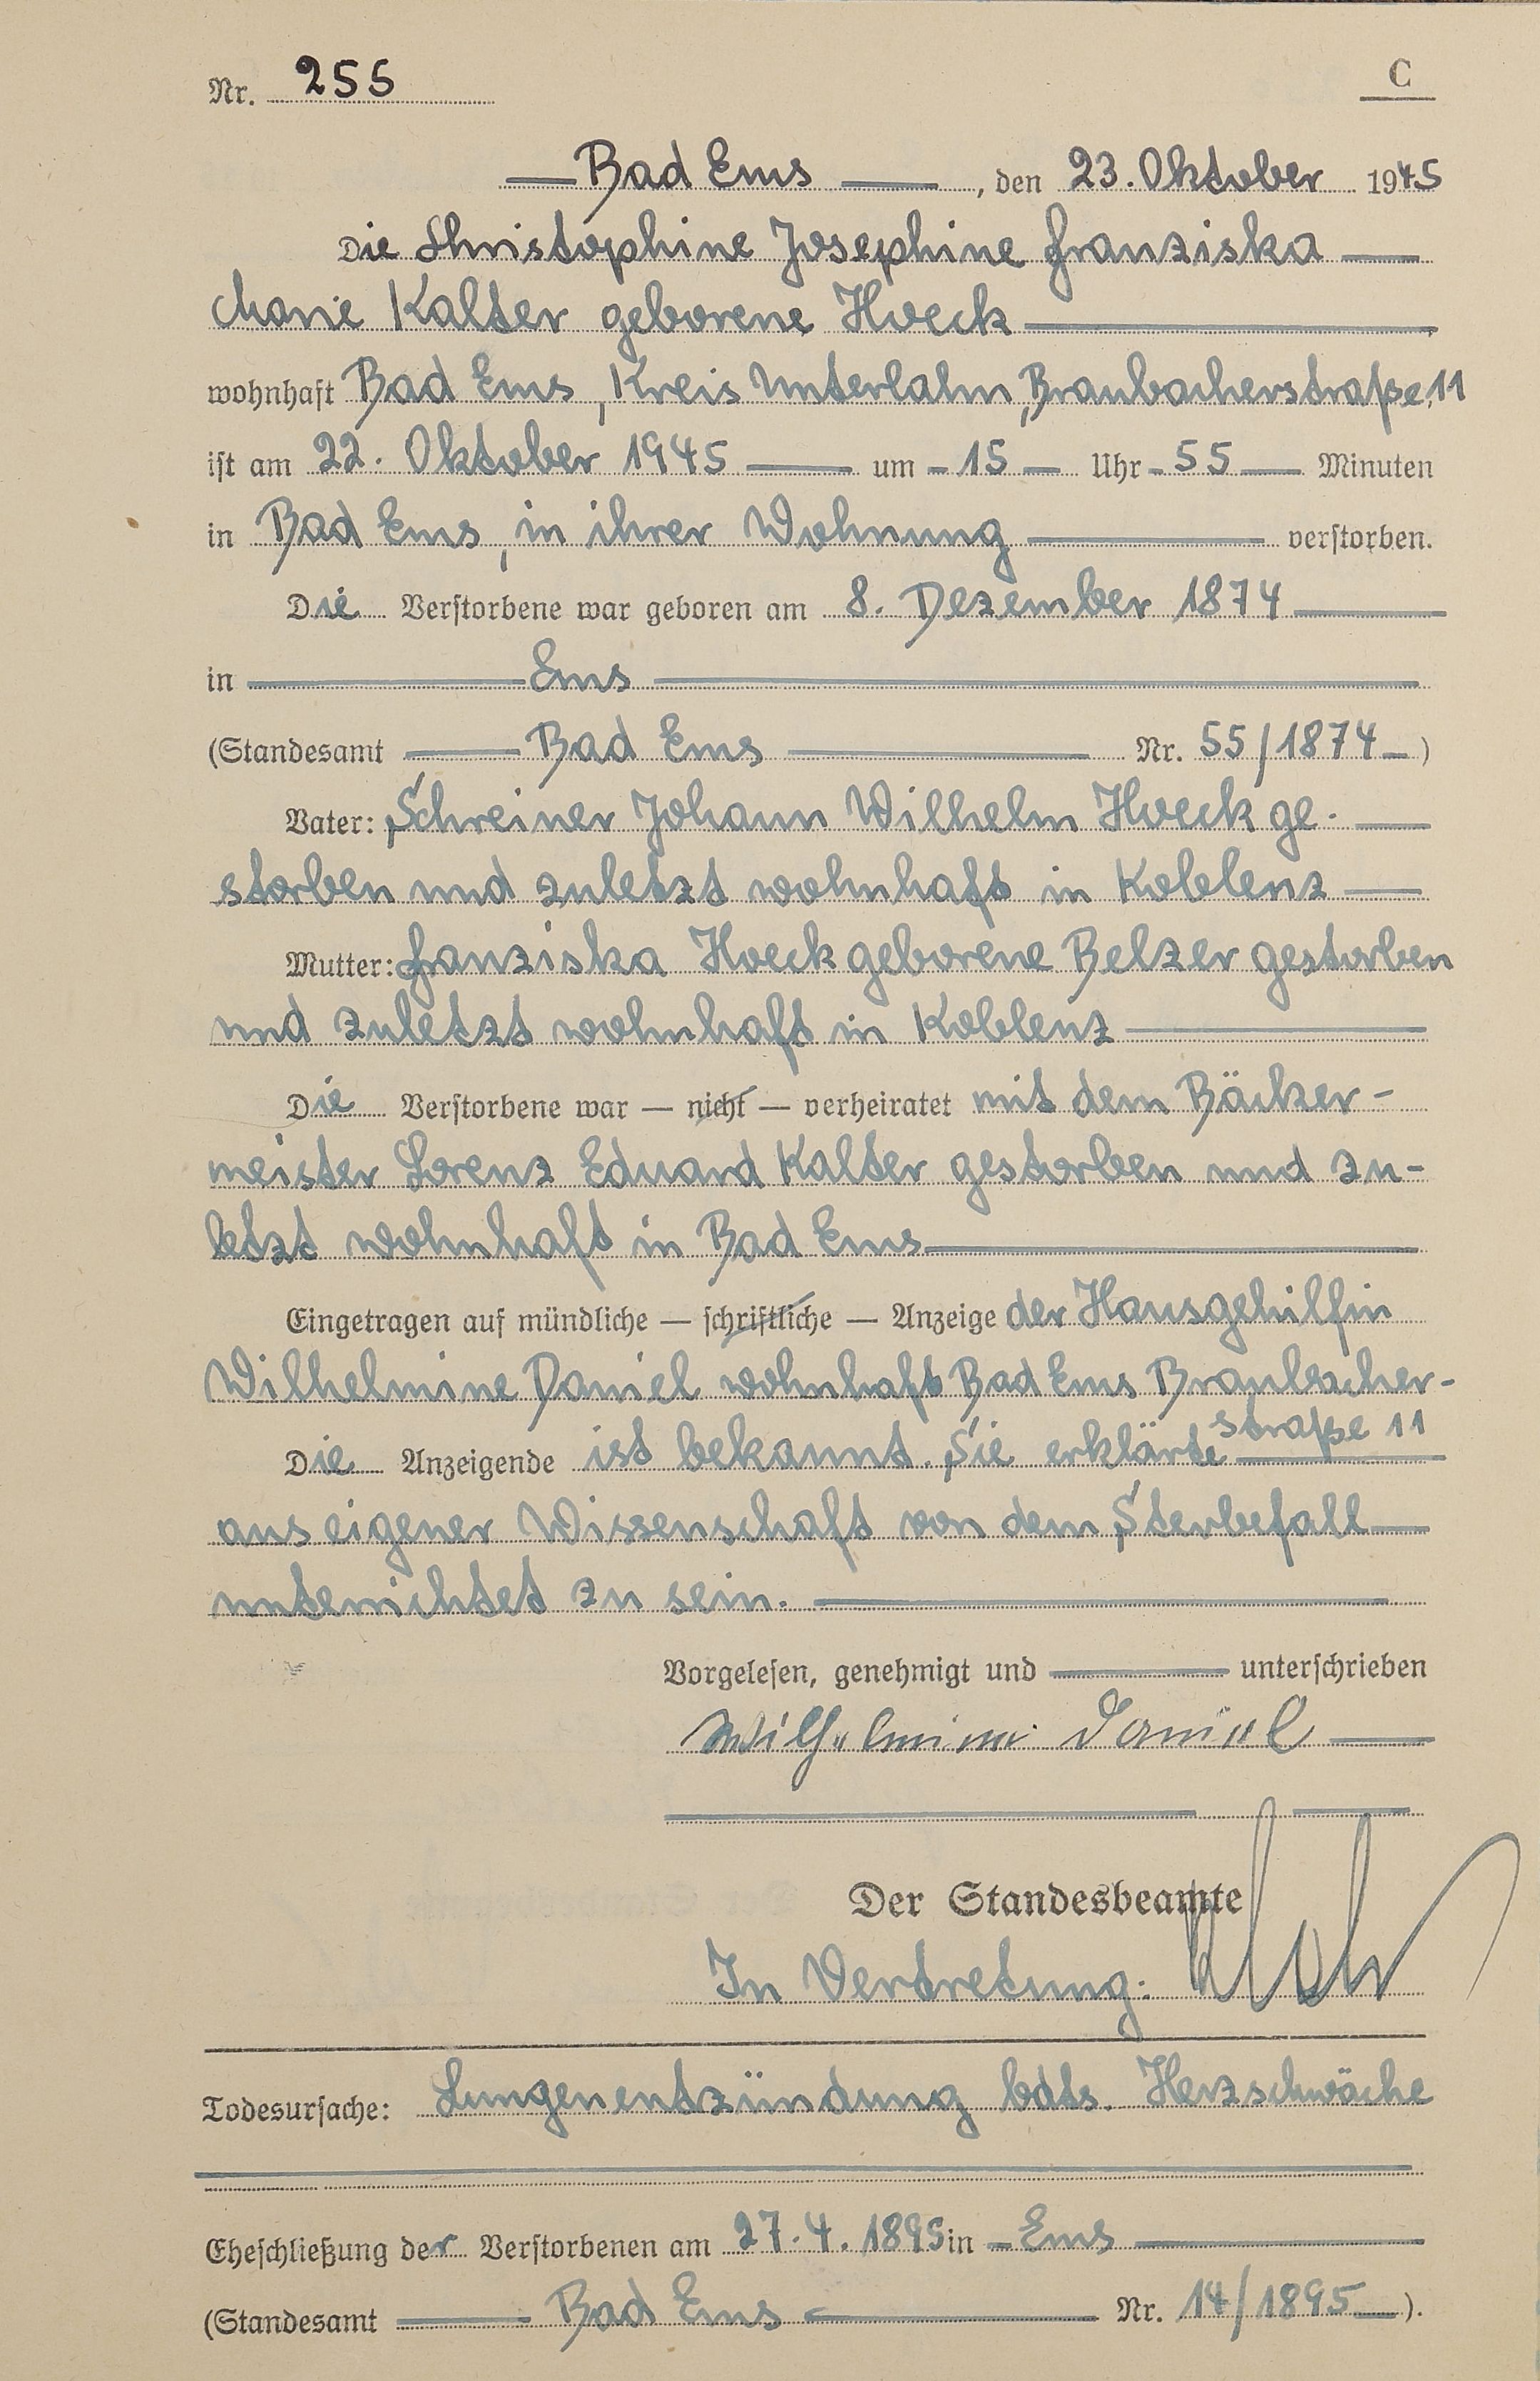 Nr. 255 C
Bad Ems, den 23. Oktober 1945
Die Christophine Josephine Franziska
Marie Kalter geborene Hoeck
wohnhaft Bad Ems, Kreis Unterlahn, Braubacherstraße 11
ist am 22. Oktober 1945 um 15 Uhr 55 Minuten
in Bad Ems, in ihrer Wohnung verstorben.
Die Verstorbene war geboren am 8. Dezember 1874
in Ems
(Standesamt Bad Ems Nr. 55/1874)
Vater: Schreiner Johann Wilhelm Hoeck ge-
storben und zuletzt wohnhaft in Koblenz
Mutter: Franziska Hoeck geborene Belzer gestorben
und zuletzt wohnhaft in Koblenz
Die Verstorbene war — nicht — verheiratet mit dem Bäcker-
meister Lorenz Eduard Kalter gestorben und zu-
letzt wohnhaft in Bad Ems
Eingetragen auf mündliche — schriftliche — Anzeige der Hausgehilfin
Wilhelmine Daniel wohnhaft Bad Ems Braubacher-
straße 11
Die Anzeigende ist bekannt. Sie erklärte
aus eigener Wissenschaft von dem Sterbefall
unterrichtet zu sein.
Vorgelesen, genehmigt und unterschrieben
Wilhelmine Daniel
Der Standesbeamte
In Vertretung:
Todesursache: Lungenentzündung bdts. Herzschwäche
Eheschließung der Verstorbenen am 27.4.1895 in Ems
(Standesamt Bad Ems Nr. 14/1895).